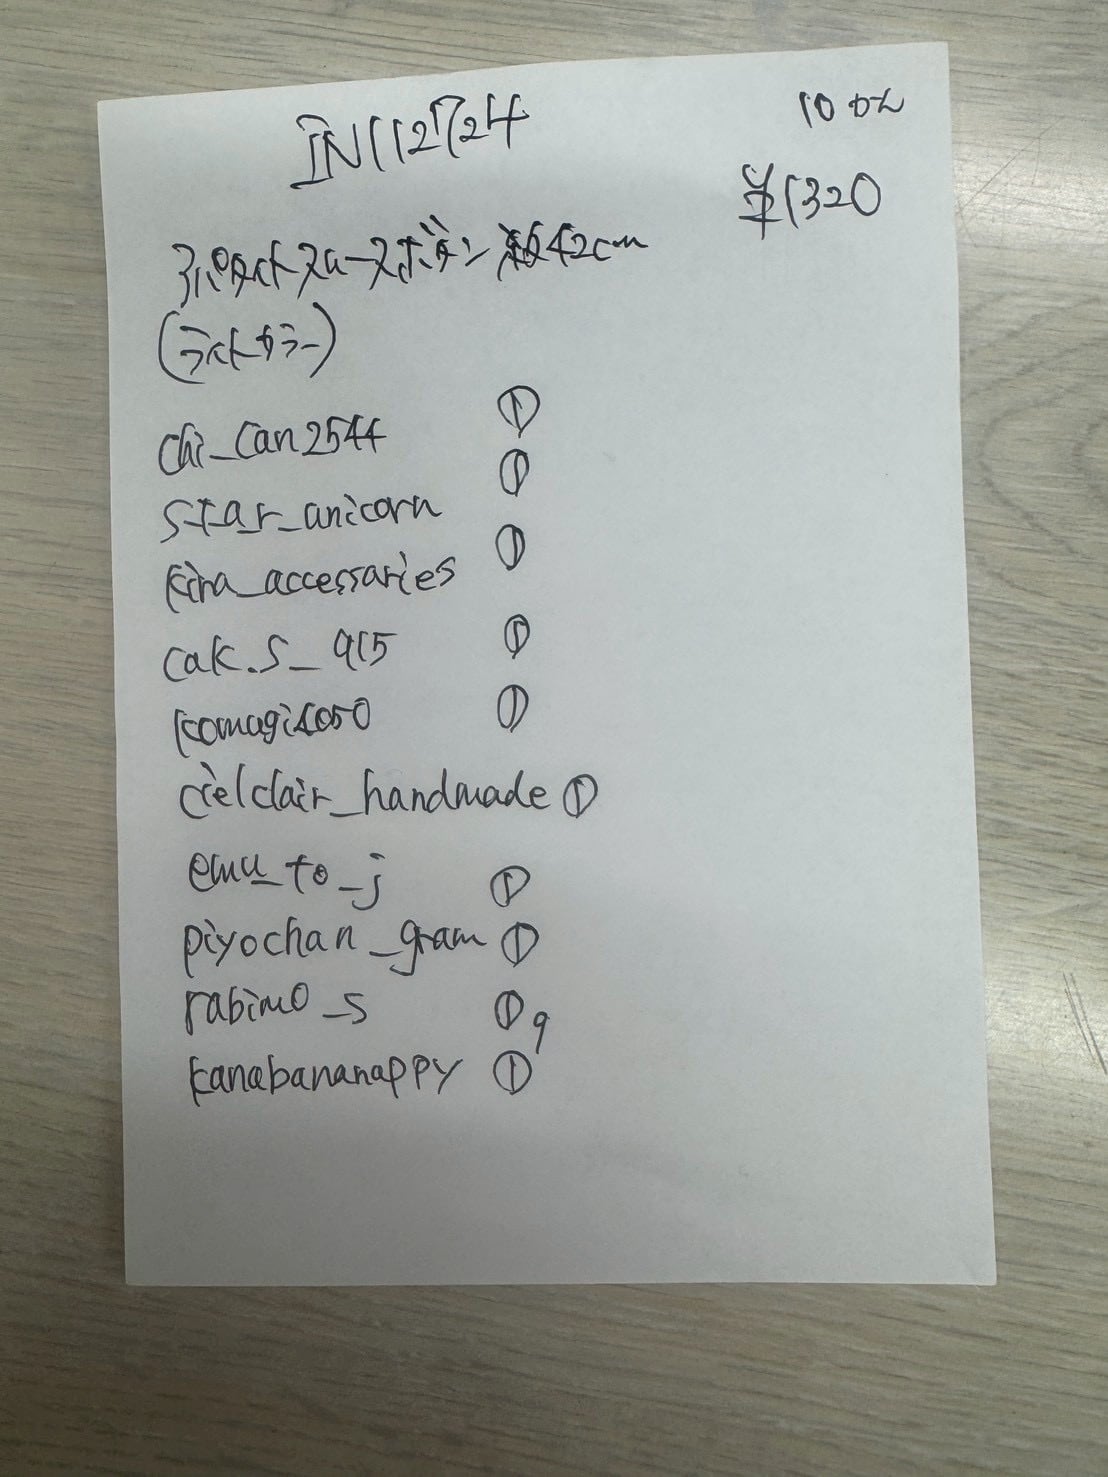 IN112724
10 のみ
¥1320
スパイトスムースボタン 約42cm
(ライトカラー)
chi_can2544 ①
star_anicorn ①
kira_accessaries ①
cak.s_915 ①
komagi4050 ①
cielclair_handmade ①
emu_to_j ①
piyochan_gram ①
rabimo_s ① 9
kanabananappy ①